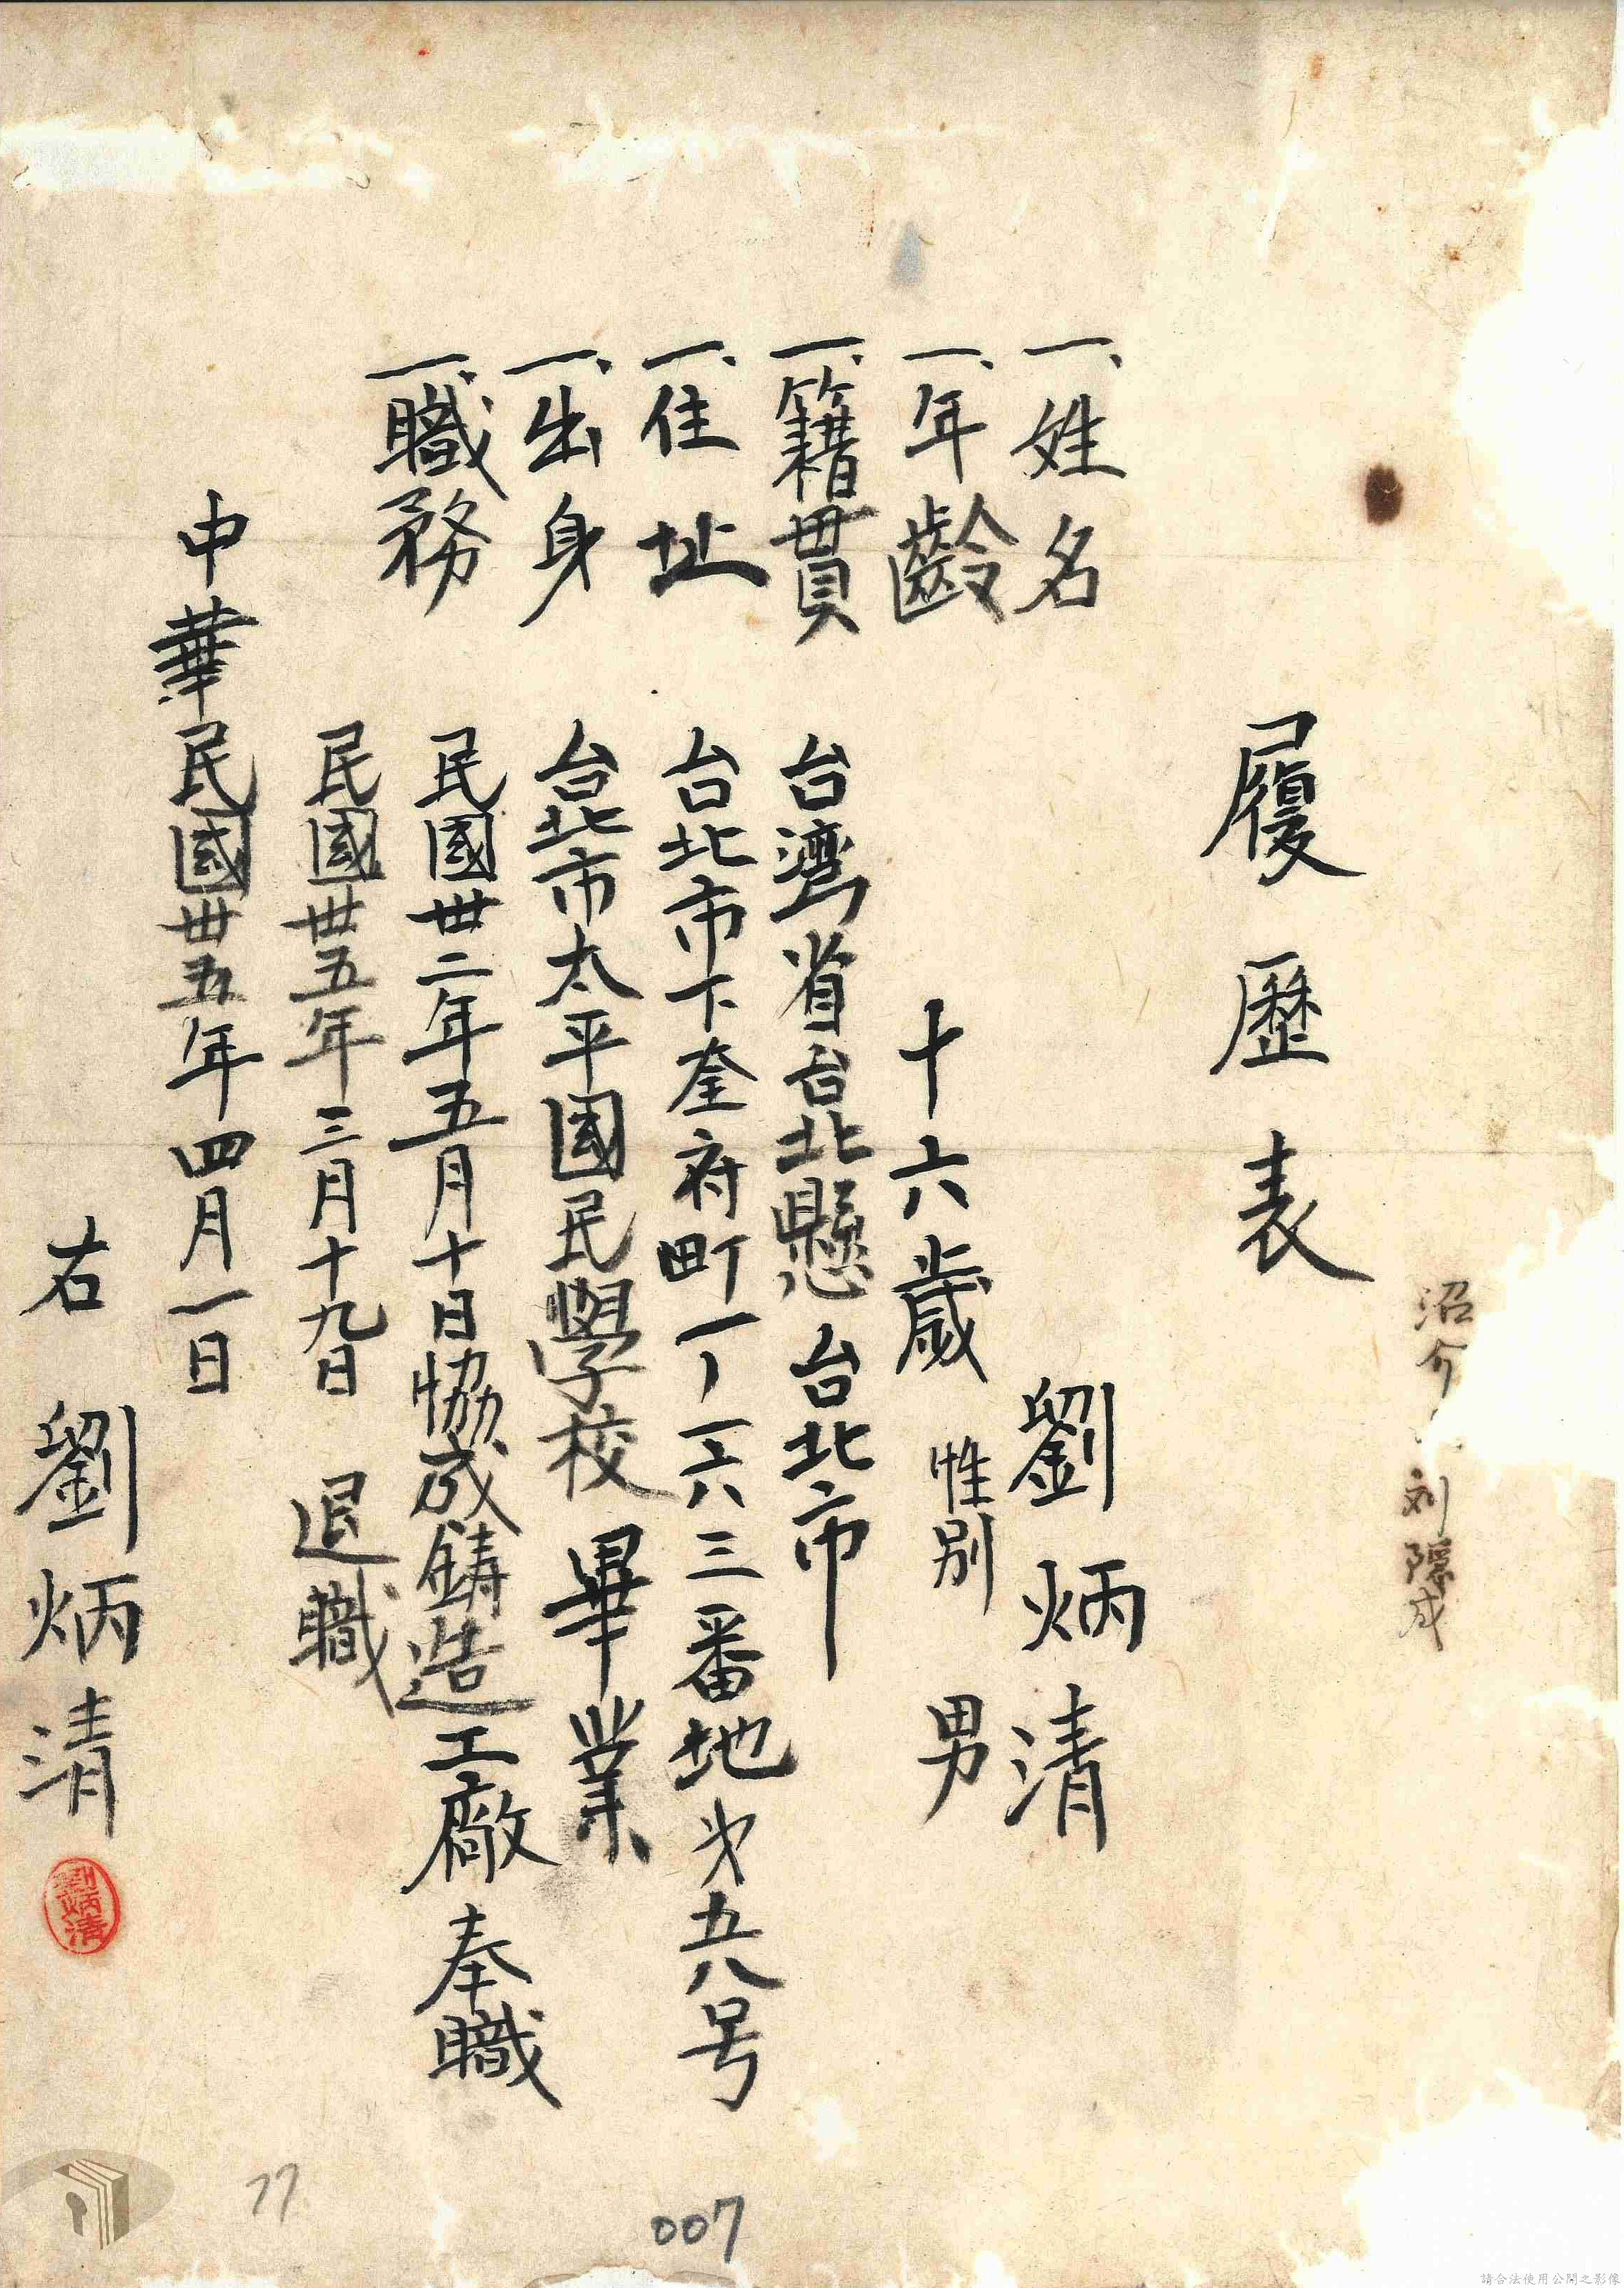 沼介 刘隠成
履歷表
一、姓名 劉炳清
一、年齡 十六歲 性別 男
一、籍貫 台湾省台北縣台北市
一、住址 台北市下奎府町一丁一六三番地才五八号
一、出身 台北市太平國民學校畢業
一、職務 民國卅二年五月十日協成鑄造工廠奉職
民國卅五年三月十九日 退職
中華民國卅五年四月一日
右 劉炳清
劉炳清
77
007
請合法使用公開之影像